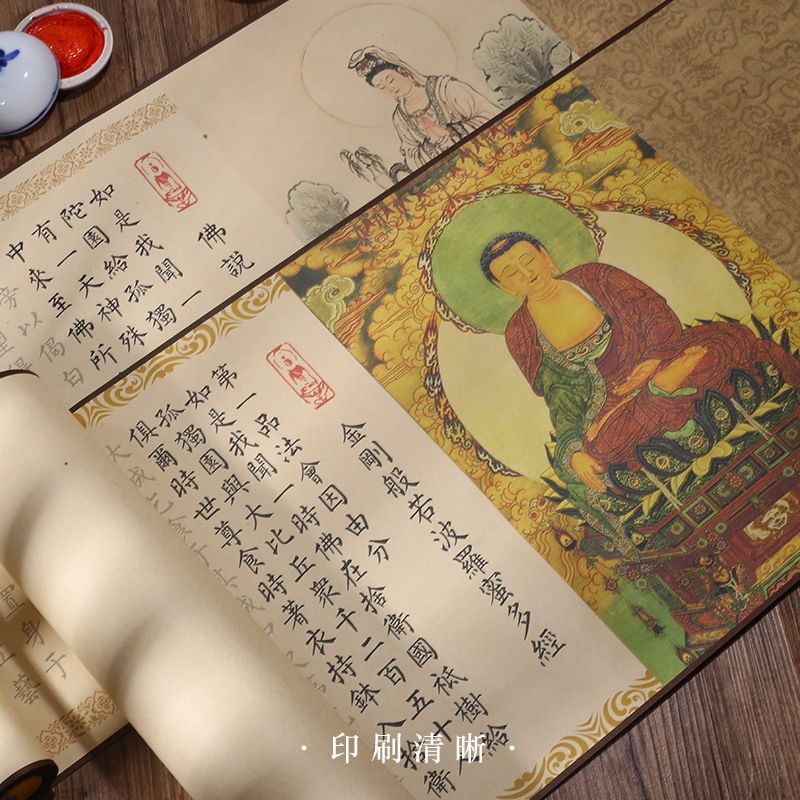 佛說
如是我聞一
陀園給孤獨
有一天神殊
中來至佛所
以偈白
金剛般若波羅蜜多經
第一品法會因由分
如是我聞一時佛在捨衛國祇樹給
孤獨園與大比丘眾千二百五十
俱爾時世尊食時著衣持鉢入捨衛
置身于
· 印刷清晰 ·